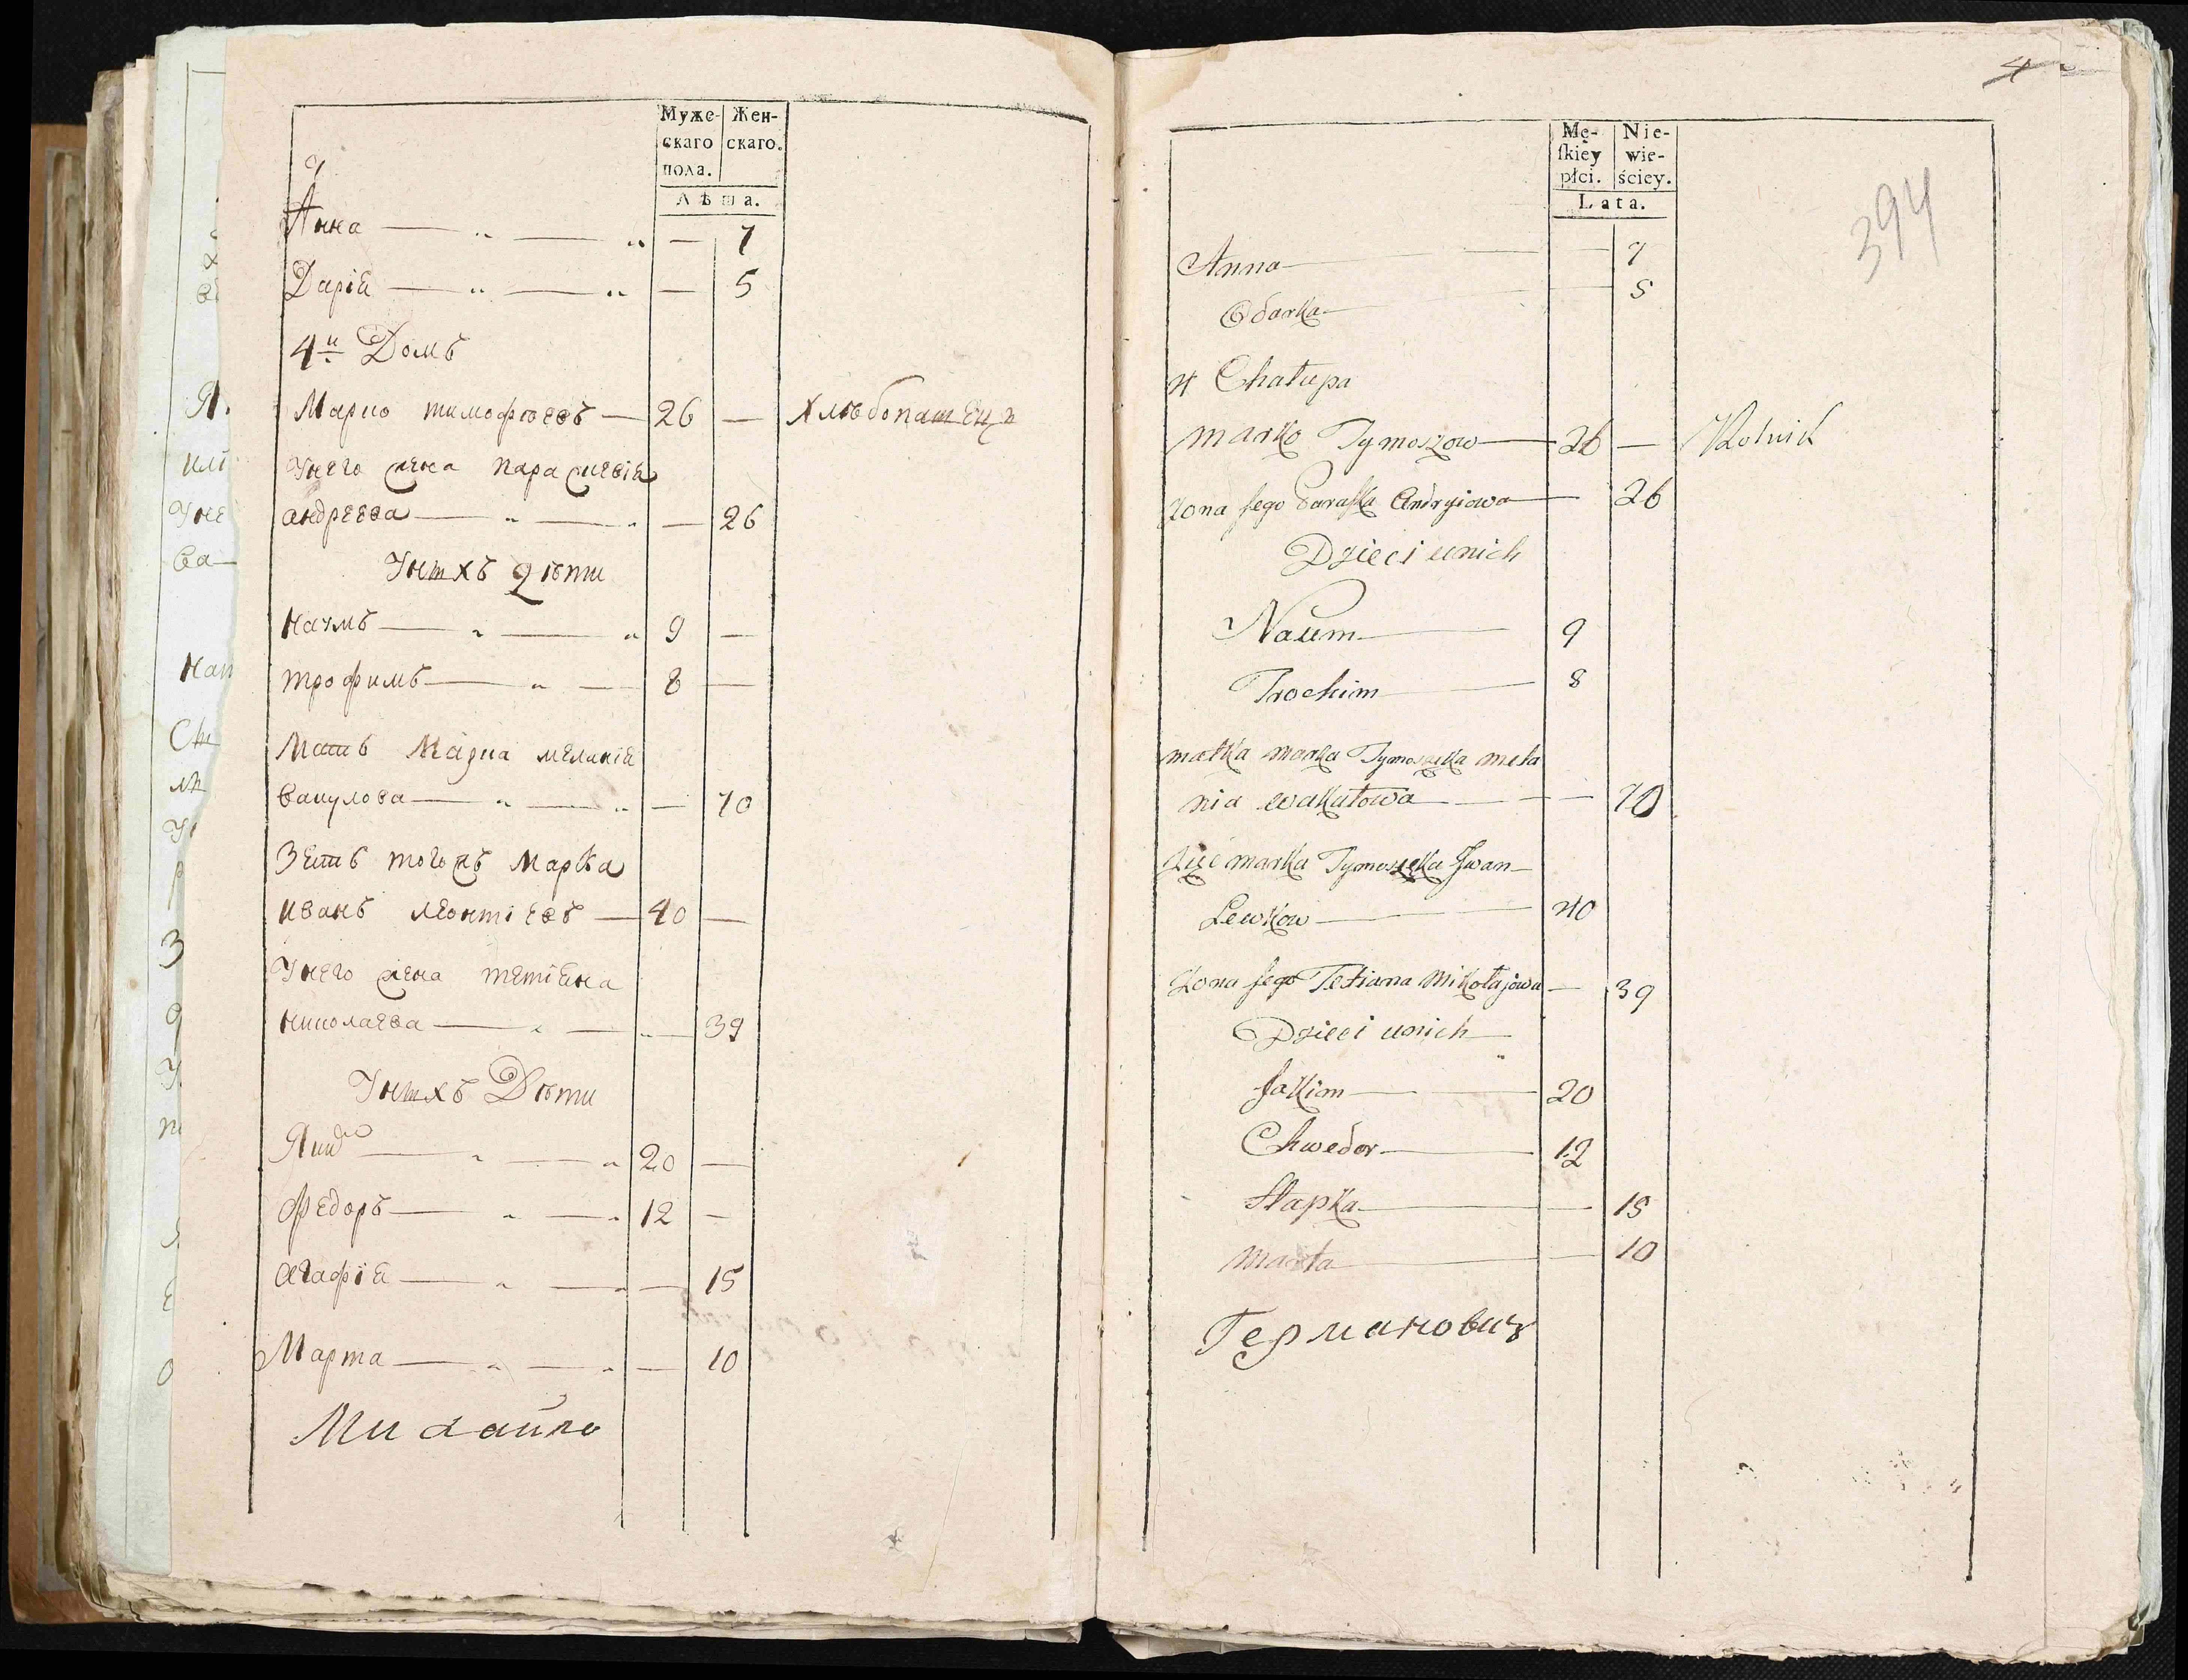 Муже-
скаго
пола.
Жен-
скаго.
Лѣта.
Анна — — — 7
Дарія — — — 5
4й Домъ
Марко тимофѣевъ — 26 — Хлѣбопашецъ
Унего жена параскевія
андреева — — — 26
Унихъ дѣти
наумъ — — 9 —
трофимъ — — 8 —
Мать Марка меланія
вакулова — — — 70
Зять тогожъ Марка
иванъ леонтіевъ — 40 —
Унего жена тетіана
николаева — — — 39
Унихъ Дѣти
— — 20 —
федоръ — — 12 —
агафія — — — 15
Марта — — — 10
Михайло
4
394
Mę-
skiey
płci.
Nie-
wie-
ściey.
Lata.
Anna — — 7
Odarka — — 5
4 Chałupa
marko Tymoszow — 26 — Rolnik
Zona jego Paraska Andryiowa — 26
Dzieci unich
Naum — 9
Trochim — 8
matka marka Tymoszka meła
nia wakułowa — — 70
Zięć marka Tymoszka Jwan
Lewkow — 40
Zona jego Tetiana Mikołajowa — 39
Dzieci unich
Jakim — 20
Chwedor — 12
Hapka — — 15
Marta — — 10
Германович